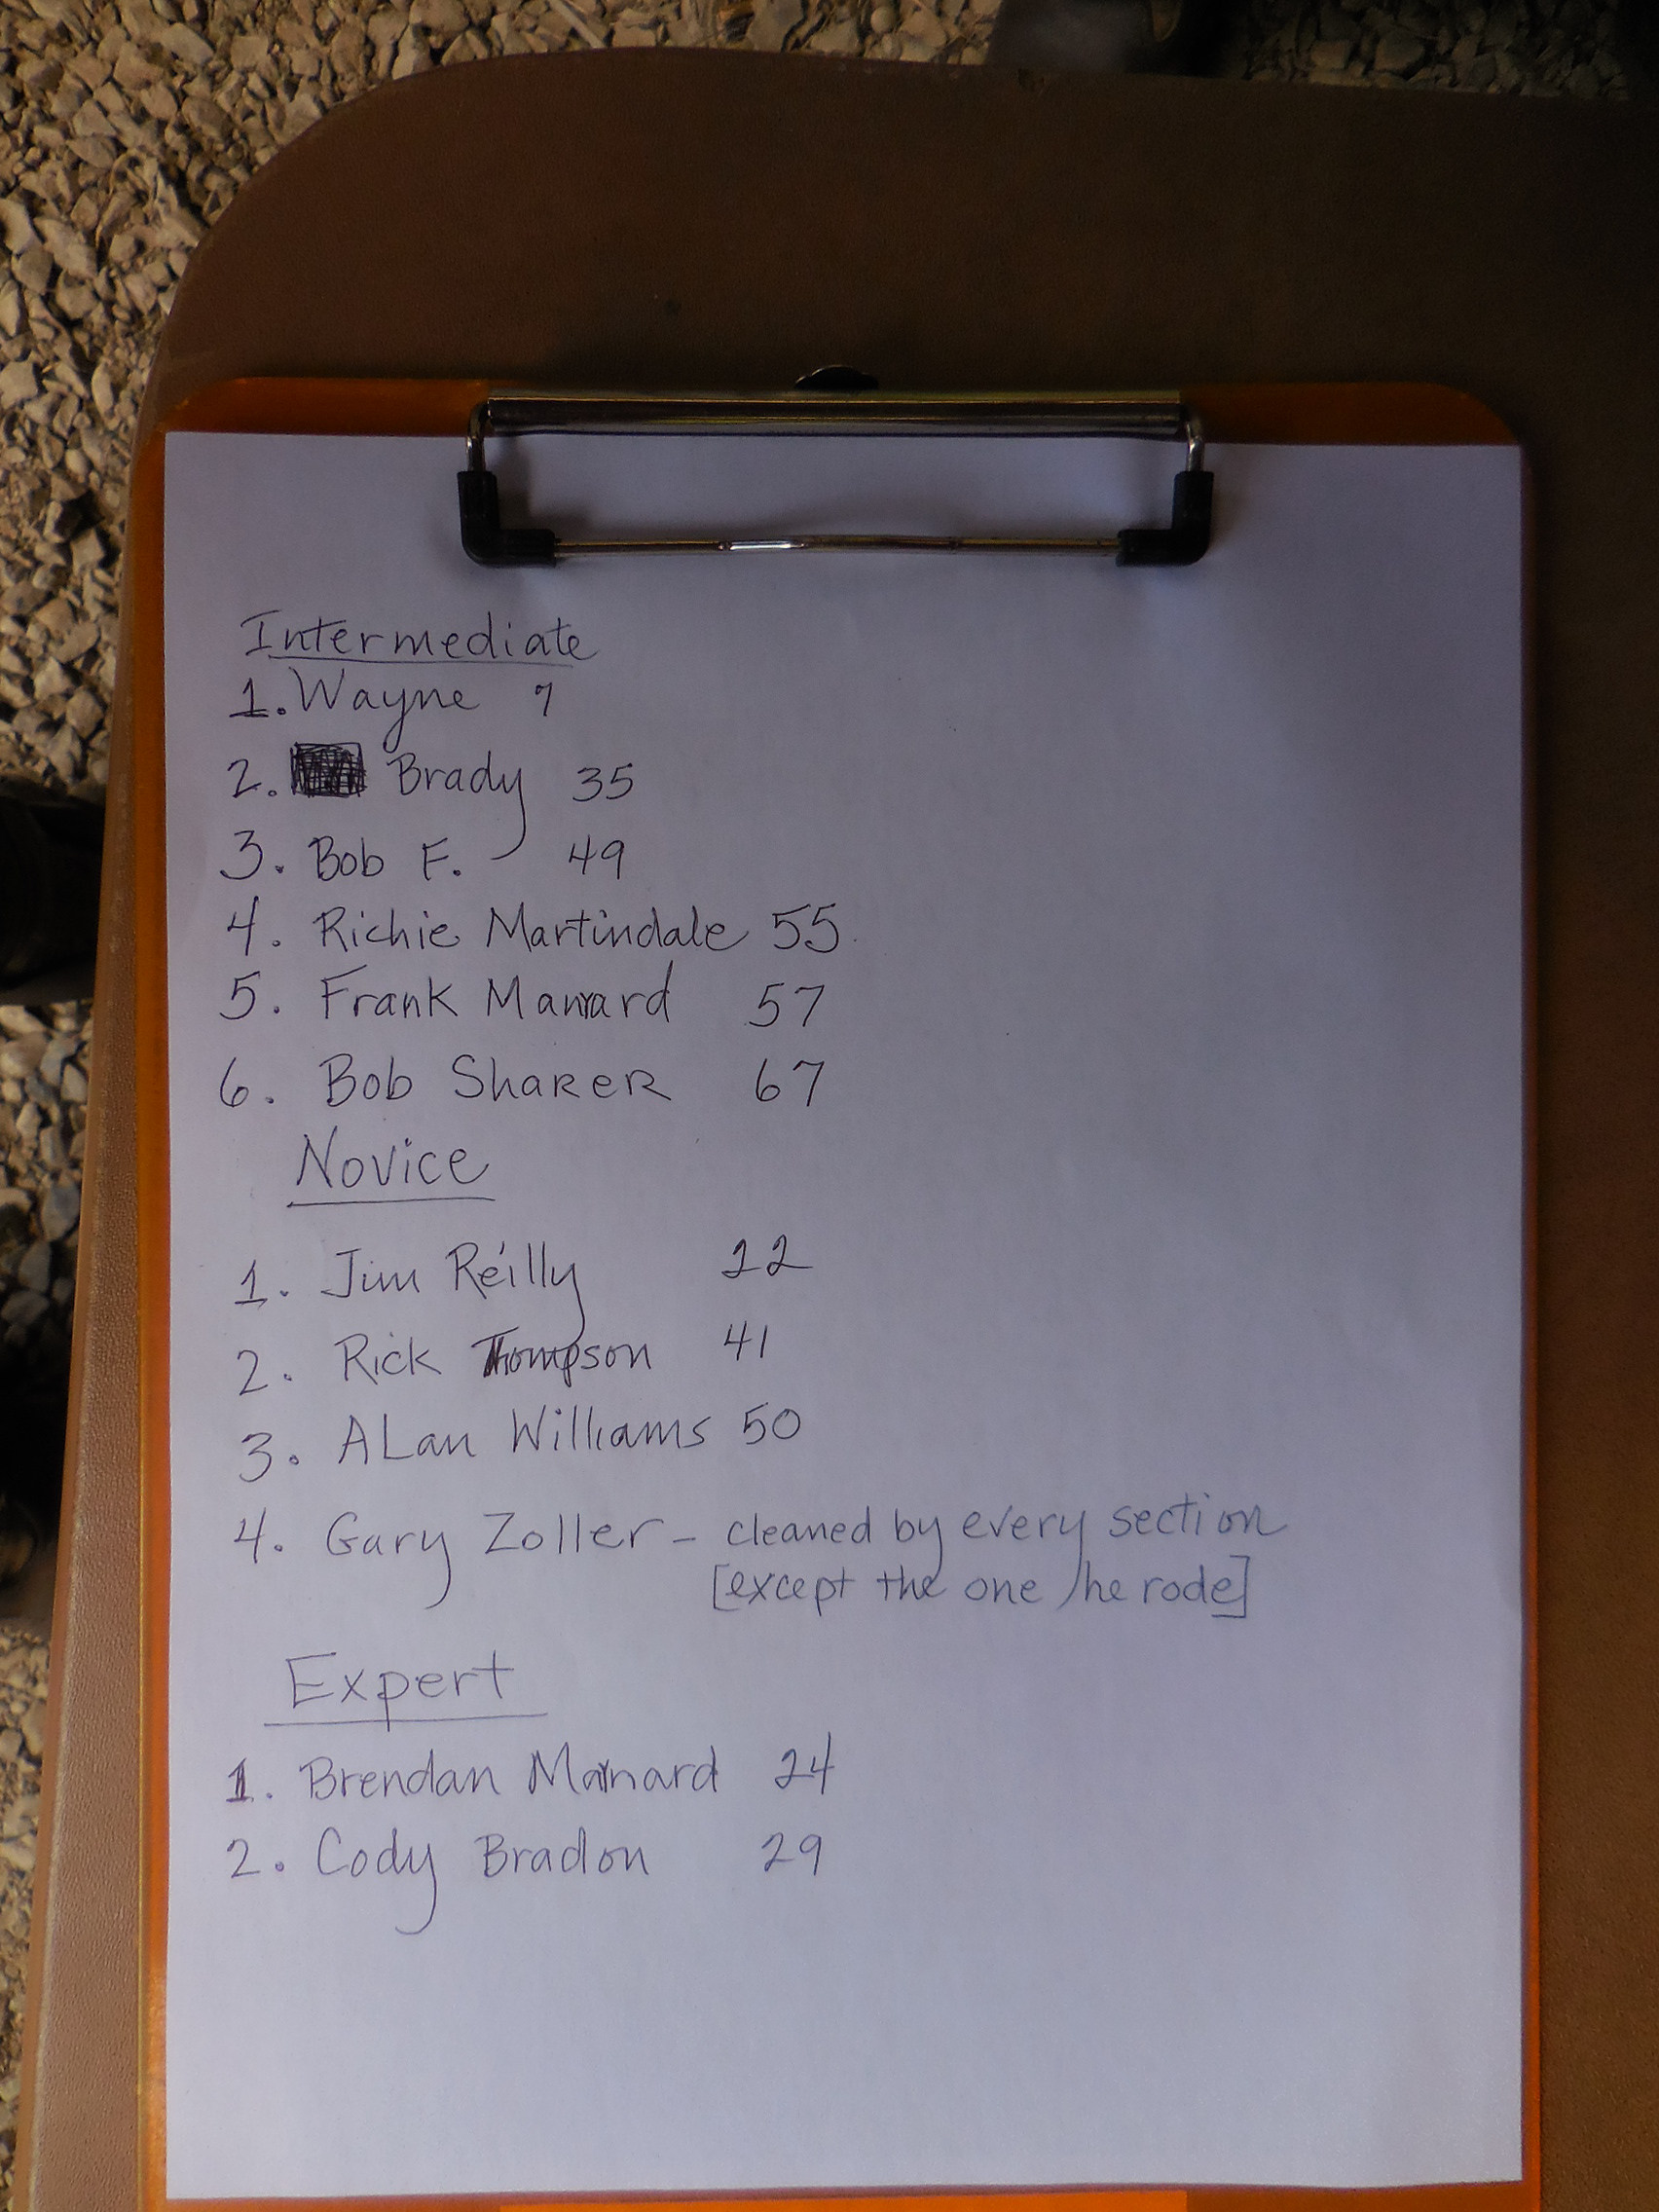 Intermediate
1. Wayne 7
2. Brady 35
3. Bob F. 49
4. Richie Martindale 55
5. Frank 57
6. Bob Sharer 67
Novice
1. Jim Reilly 22
2. Rick Thompson 41
3. ALan Williams 50
4. Gary Zoller - cleaned by every section
[except the one he rode]
Expert
1. Brendan 24
2. Cody Bradon 29